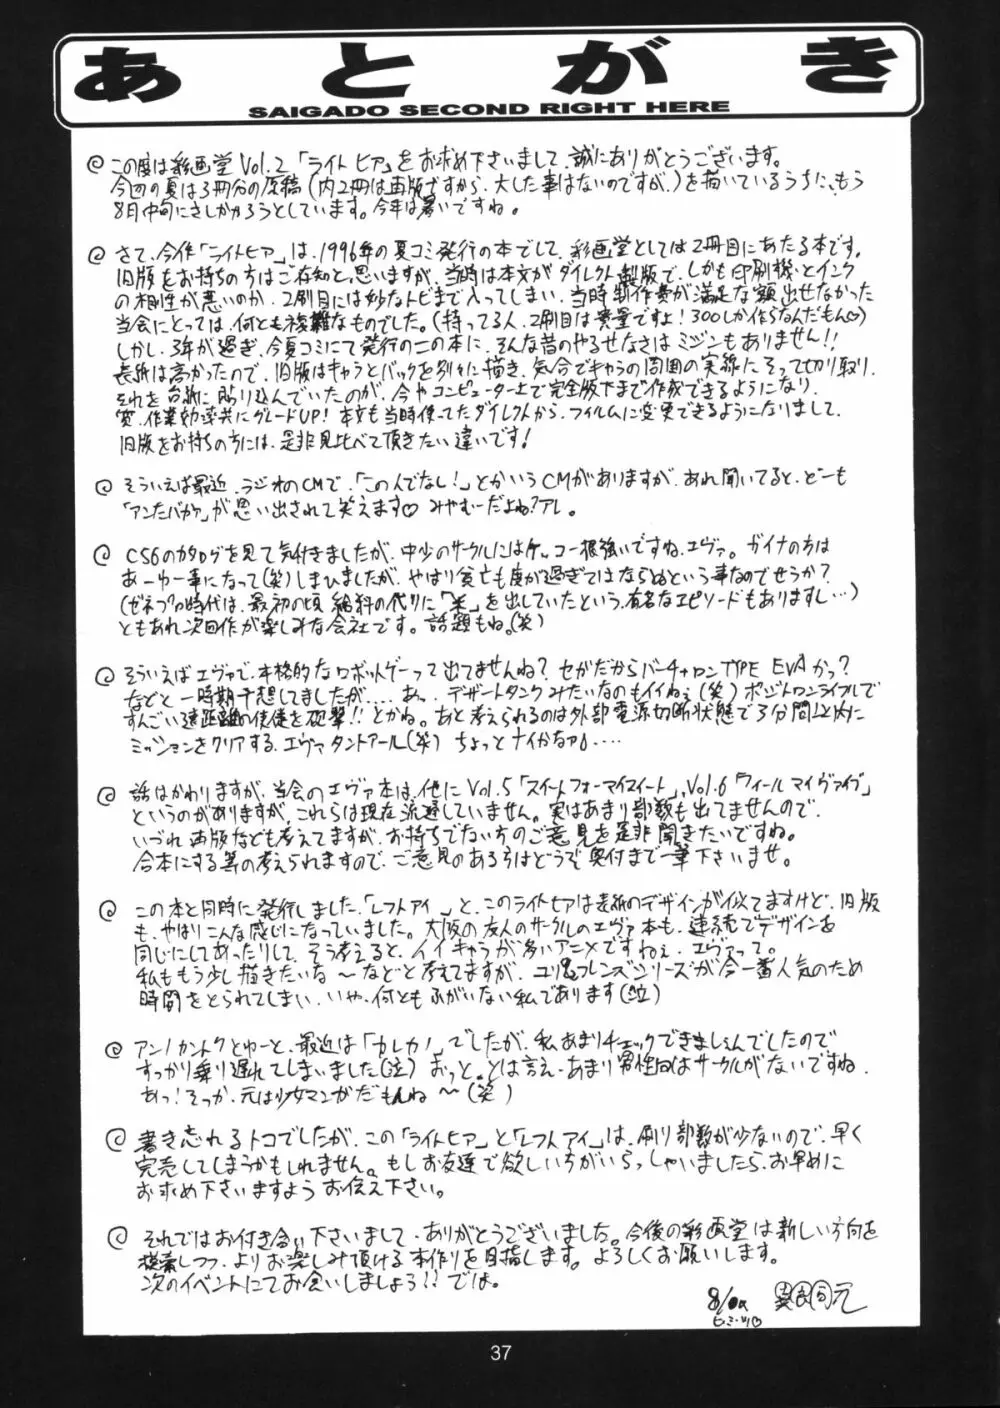 あとがき
SAIGADO SECOND RIGHT HERE
この度は彩画堂Vol.2「ライトヒア」をお求め下さいまして、誠にありがとうございます。
今回の夏は3冊分の原稿(内2冊は再版ですから、大した事はないのですが、)を描いているうちに、もう
8月中旬にさしかかろうとしています。今年は暑いですね。
さて、今作「ライトヒア」は、1996年の夏コミ発行の本でして、彩画堂としては2冊目にあたる本です。
旧版をお持ちの方はご存知と思いますが、当時は本文がダイレクト製版で、しかも印刷機とインク
の相性が悪いのか、2刷目には妙なトビまで入ってしまい、当時制作費が満足な額出せなかった
当会にとっては、何とも複雑なものでした。(持ってる人、2刷目は貴重ですよ!300しか作らなんだもん♡)
しかし、3年が過ぎ、今夏コミにて発行のこの本に、そんな昔のやるせなさはミジンもありません!!
表紙は高かったので、旧版はキャラとバックを別々に描き、気合でキャラの周囲の実線にそって切り取り、
それを台紙に貼り込んでいたのが、今やコンピューター上で完全版下まで作成できるようになり
質、作業効率共にグレードUP!本文も当時使ってたダイレクトから、フィルムに変更できるようになりまして、
旧版をお持ちの方には、是非見比べて頂きたい違いです!
そういえば最近、ラジオのCMで、「この人でなし!」とかいうCMがありますが、あれ聞いてると、どーも
「アンタバカァ」が思い出されて笑えます♡みやむーだよね?アレ。
CS6のカタログを見て気付きましたが、中少のサークルにはケッコー根強いですね、エヴァ。ガイナの方は
あーゆー事になって(笑)しまひましたが、やはり貧亡も度が過ぎてはならぬという事なのでせうか?
(ゼネプロ時代は、最初の頃、給料の代りに「米」を出していたという、有名なエピソードもありますし…)
ともあれ次回作が楽しみな会社です。話題もね。(笑)
そういえばエヴァで、本格的なロボットゲーって出てませんね?セガだからバーチャロンTYPE EVAかっ?
などと一時期予想してましたが……あっ、デザートタンクみたいなのもイイねぇ(笑)ポジトロンライフルで
すんごい遠距離の使徒を砲撃!!とかね。あと考えられるのは外部電源切断状態で3分間以内に
ミッションをクリアする、エヴァタントアール(笑)ちょっとナイかなァ…..
話はかわりますが、当会のエヴァ本は、他にVol.5「スイートフォーマイスイート」、Vol.6「フィールマイヴァイヴ」
というのがありますが、これらは現在流通していません。実はあまり部数も出てませんので、
いづれ再版なども考えてますが、お持ちでない方のご意見を是非聞きたいですね。
合本にする等の考えられますので、ご意見のある方はどうぞ奥付まで一筆下さいませ。
この本と同時に発行しました、「レフトアイ」と、このライトヒアは表紙のデザインが似てますけど、旧版
も、やはりこんな感じになっていました。大阪の友人のサークルのエヴァ本も、連続でデザインを
同じにしてあったりして、そう考えると、イイキャラが多いアニメですねぇ、エヴァって。
私ももう少し描きたいな〜などと考えてますが、ユリ&フレンズシリーズが今一番人気のため
時間をとられてしまい、いや、何ともふがいない私であります(泣)
アンノカントクとゆーと、最近は「カレカノ」でしたが、私あまりチェックできましぇんでしたので
すっかり乗り遅れてしまいました(泣)おっと。とは言え、あまり男性向はサークルがないですね
あっ!そっか、元は少女マンガだもんね〜(笑)
書き忘れるトコでしたが、この「ライトヒア」と「レフトアイ」は、刷り部数が少ないので、早く
完売してしまうかもしれません。もしお友達で欲しい方がいらっしゃいましたら、お早めに
お求め下さいますようお伝え下さい。
それではお付き合い下さいまして、ありがとうございました。今後の彩画堂は新しい方向を
模索しつつ、よりお楽しみ頂ける本作りを目指します。よろしくお願いします。
次のイベントにてお会いしましょう!!では。
37